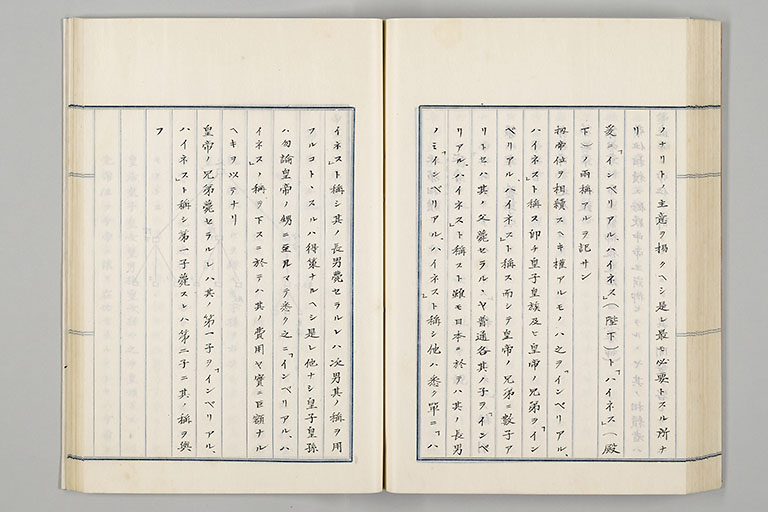 ノナリトノ主意ヲ掲クヘシ是レ最モ必要トスル所ナ
リ
爰ニ「インペリアル、ハイネス」(陛下)ト「ハイネス」(殿
下)ノ両称アルヲ記サン
初帝位ヲ相續スヘキ権アルモノハ之ヲ「インペリアル、
ハイネス」ト称ス即チ皇子皇族及ヒ皇帝ノ兄弟ヲ「イン
ペリアル、ハイネス」ト称ス而シテ皇帝ノ兄弟ニ数子ア
リトセハ其ノ父薨セラルヽヤ普通各其ノ子ヲ「インペ
リアル、ハイネス」ト称スト雖モ日本ニ於テハ其ノ長男
ノミ「インペリアル、ハイネス」ト称シ他ハ悉ク単ニ「ハ
イネス」ト称シ其ノ長男薨セラルレハ次男其ノ称ヲ用
フルコトヽスルハ得策ナルヘシ是レ他ナシ皇子皇孫
ハ勿論皇帝ノ甥ニ至ルマテ悉ク之ニ「インペリアル、ハ
イネス」ノ称ヲ下スニ於テハ其ノ費用ヤ實ニ巨額ナル
ヘキヲ以テナリ
皇帝ノ兄弟薨セラルレハ其ノ第一子ヲ「インペリアル、
ハイネス」ト称シ第一子薨スレハ第二子ニ其ノ称ヲ與
フ